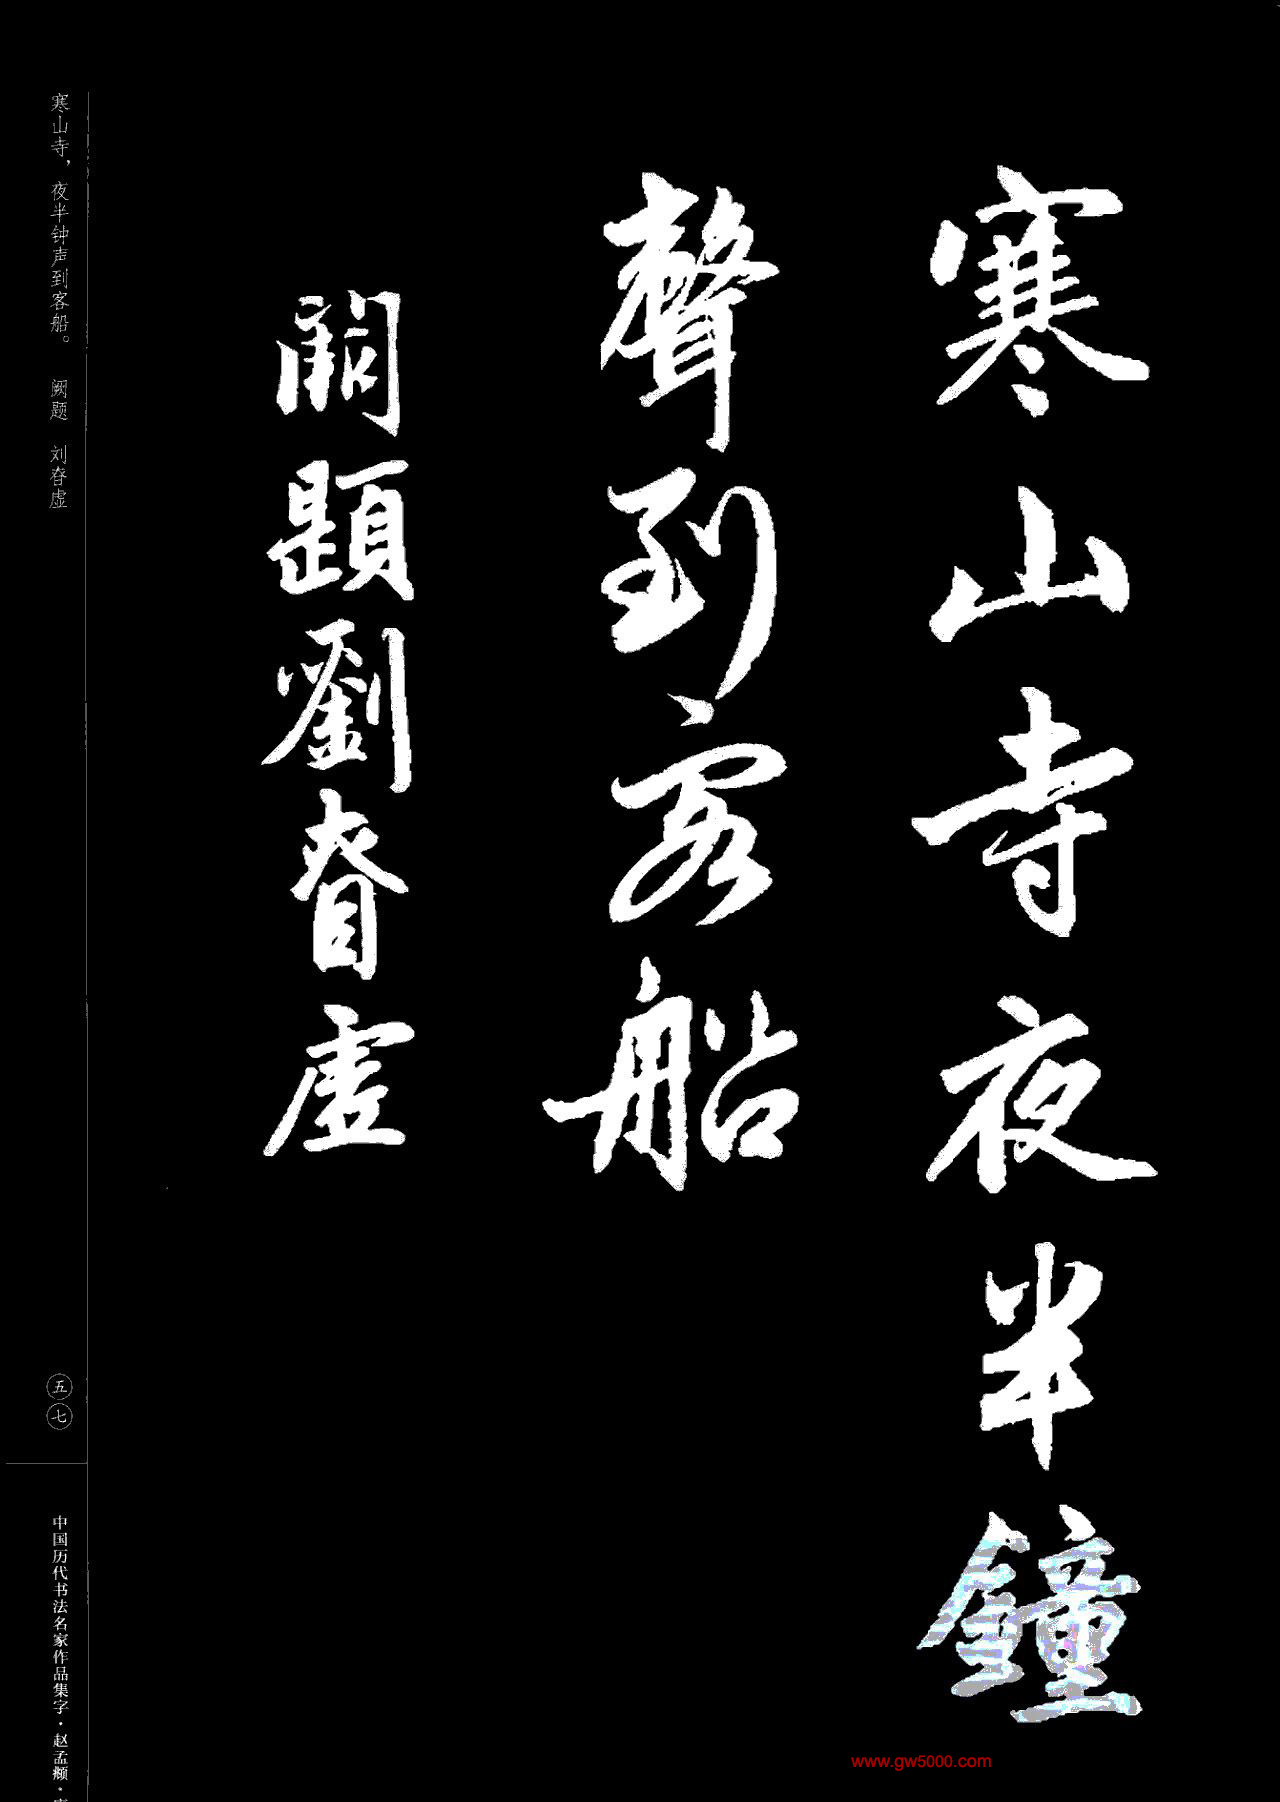 寒山寺夜半鐘
聲到客船
闕題劉眘虛
寒山寺，夜半钟声到客船。 阙题 刘眘虚
五七
中国历代书法名家作品集字·赵孟頫·
www.gw5000.com